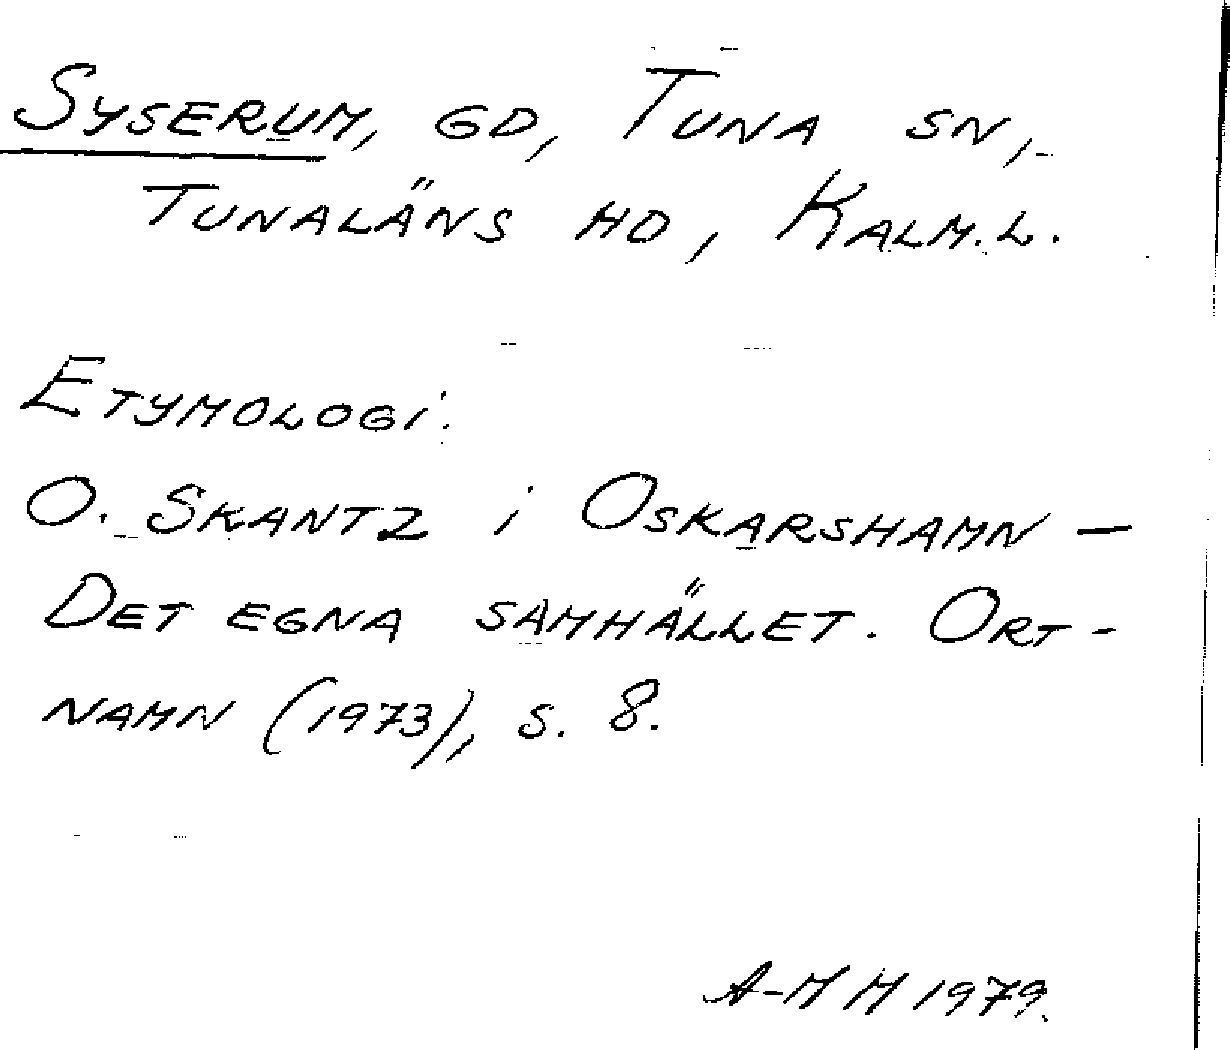 SYSERUM, GD, TUNA SN,
TUNALÄNS HD, KALM. L.
ETYMOLOGI:
O. SKANTZ i OSKARSHAMN –
DET EGNA SAMHÄLLET. ORT-
NAMN (1973), S. 8.
A-MH 1979.